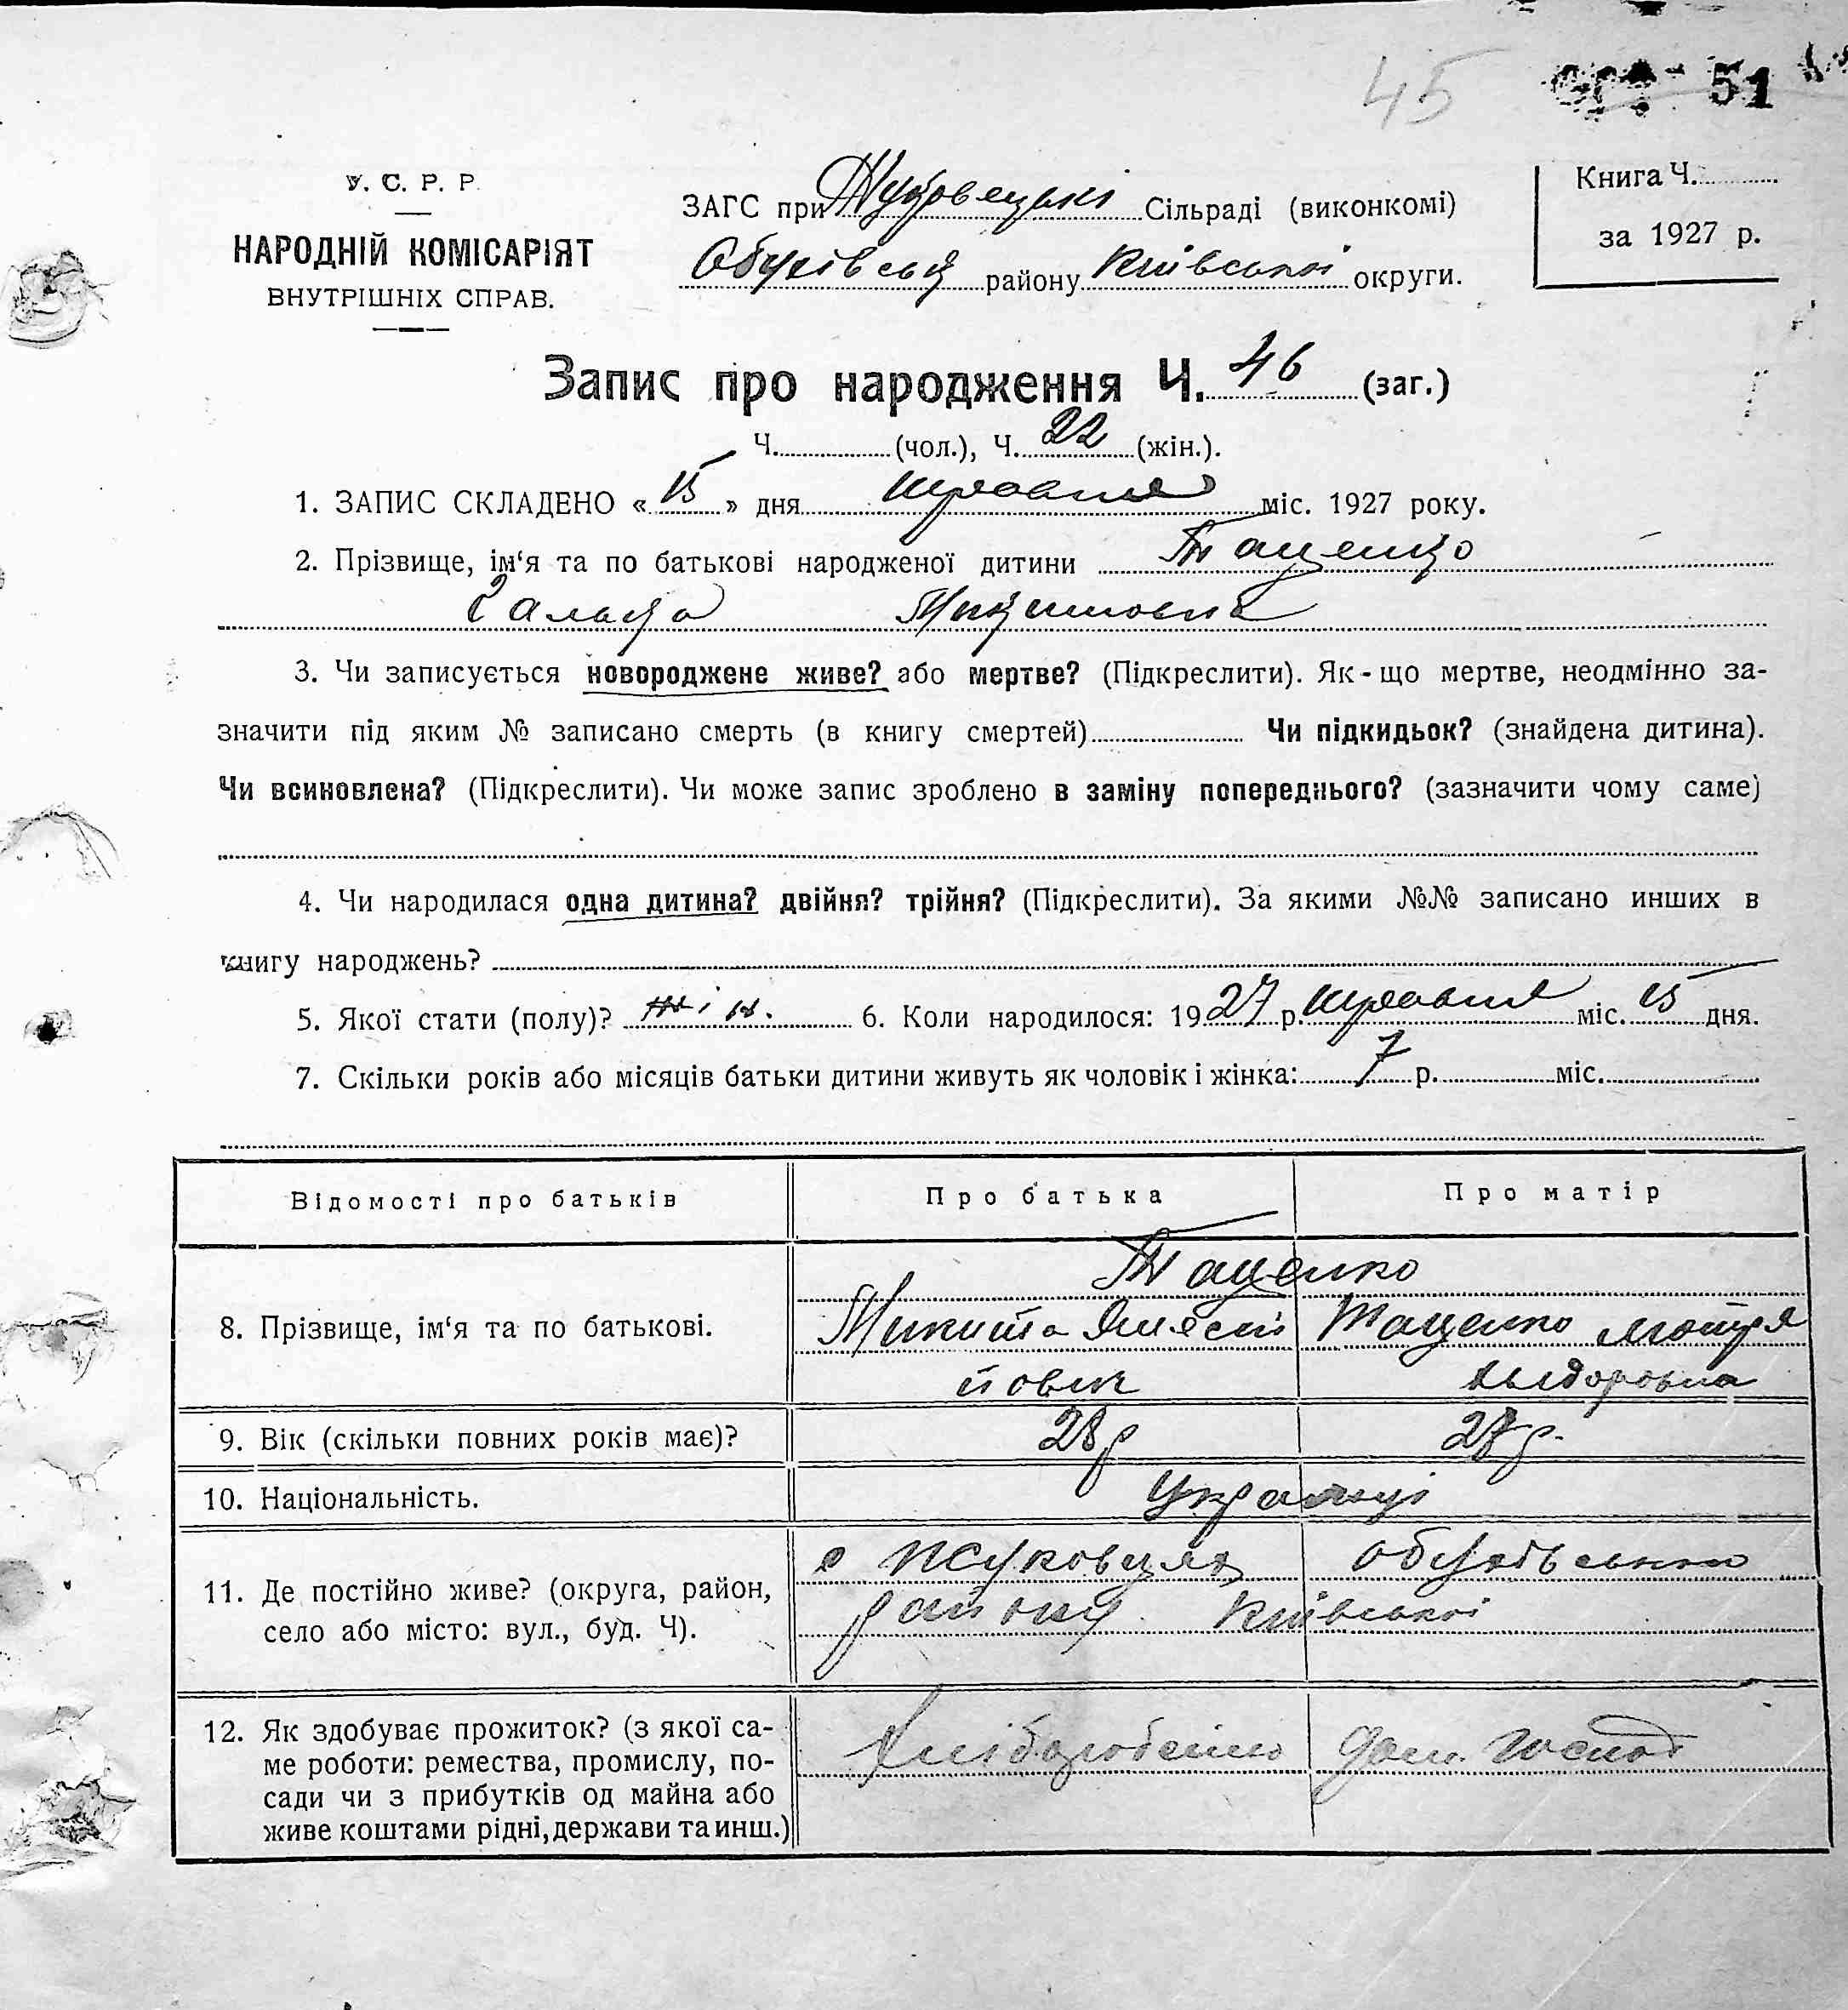 45 51
У. С. Р. Р.
НАРОДНІЙ КОМІСАРІЯТ
ВНУТРІШНІХ СПРАВ.
ЗАГС при Жуковецькі Сільраді (виконкомі)
Обухівськ району Київської округи.
Книга Ч.
за 1927 р.
Запис про народження Ч. 46 (заг.)
Ч. (чол.), Ч. 22 (жін.).
1. ЗАПИС СКЛАДЕНО « 15 » дня червня міс. 1927 року.
2. Прізвище, ім‘я та по батькові народженої дитини Таценко
Галька Микитовна
3. Чи записується новороджене живе? або мертве? (Підкреслити). Як-що мертве, неодмінно за-
значити під яким № записано смерть (в книгу смертей) Чи підкидьок? (знайдена дитина).
Чи всиновлена? (Підкреслити). Чи може запис зроблено в заміну попереднього? (зазначити чому саме)
4. Чи народилася одна дитина? двійня? трійня? (Підкреслити). За якими №№ записано инших в
книгу народжень?
5. Якої стати (полу)? жін. 6. Коли народилося: 1927 р. червня міс. 15 дня.
7. Скільки років або місяців батьки дитини живуть як чоловік і жінка: 7 р. міс.
Відомості про батьків Про батька Про матір
Таценко
8. Прізвище, ім‘я та по батькові. Микита Таценко Мотря
йович
9. Вік (скільки повних років має)? 28 р 27 р.
10. Національність. Українці
11. Де постійно живе? (округа, район,
село або місто: вул., буд. Ч).
с Жуковцях Обухівського
району Київської
12. Як здобуває прожиток? (з якої са-
ме роботи: ремества, промислу, по-
сади чи з прибутків од майна або
живе коштами рідні, держави та инш.)
Хліборобство дом. господ